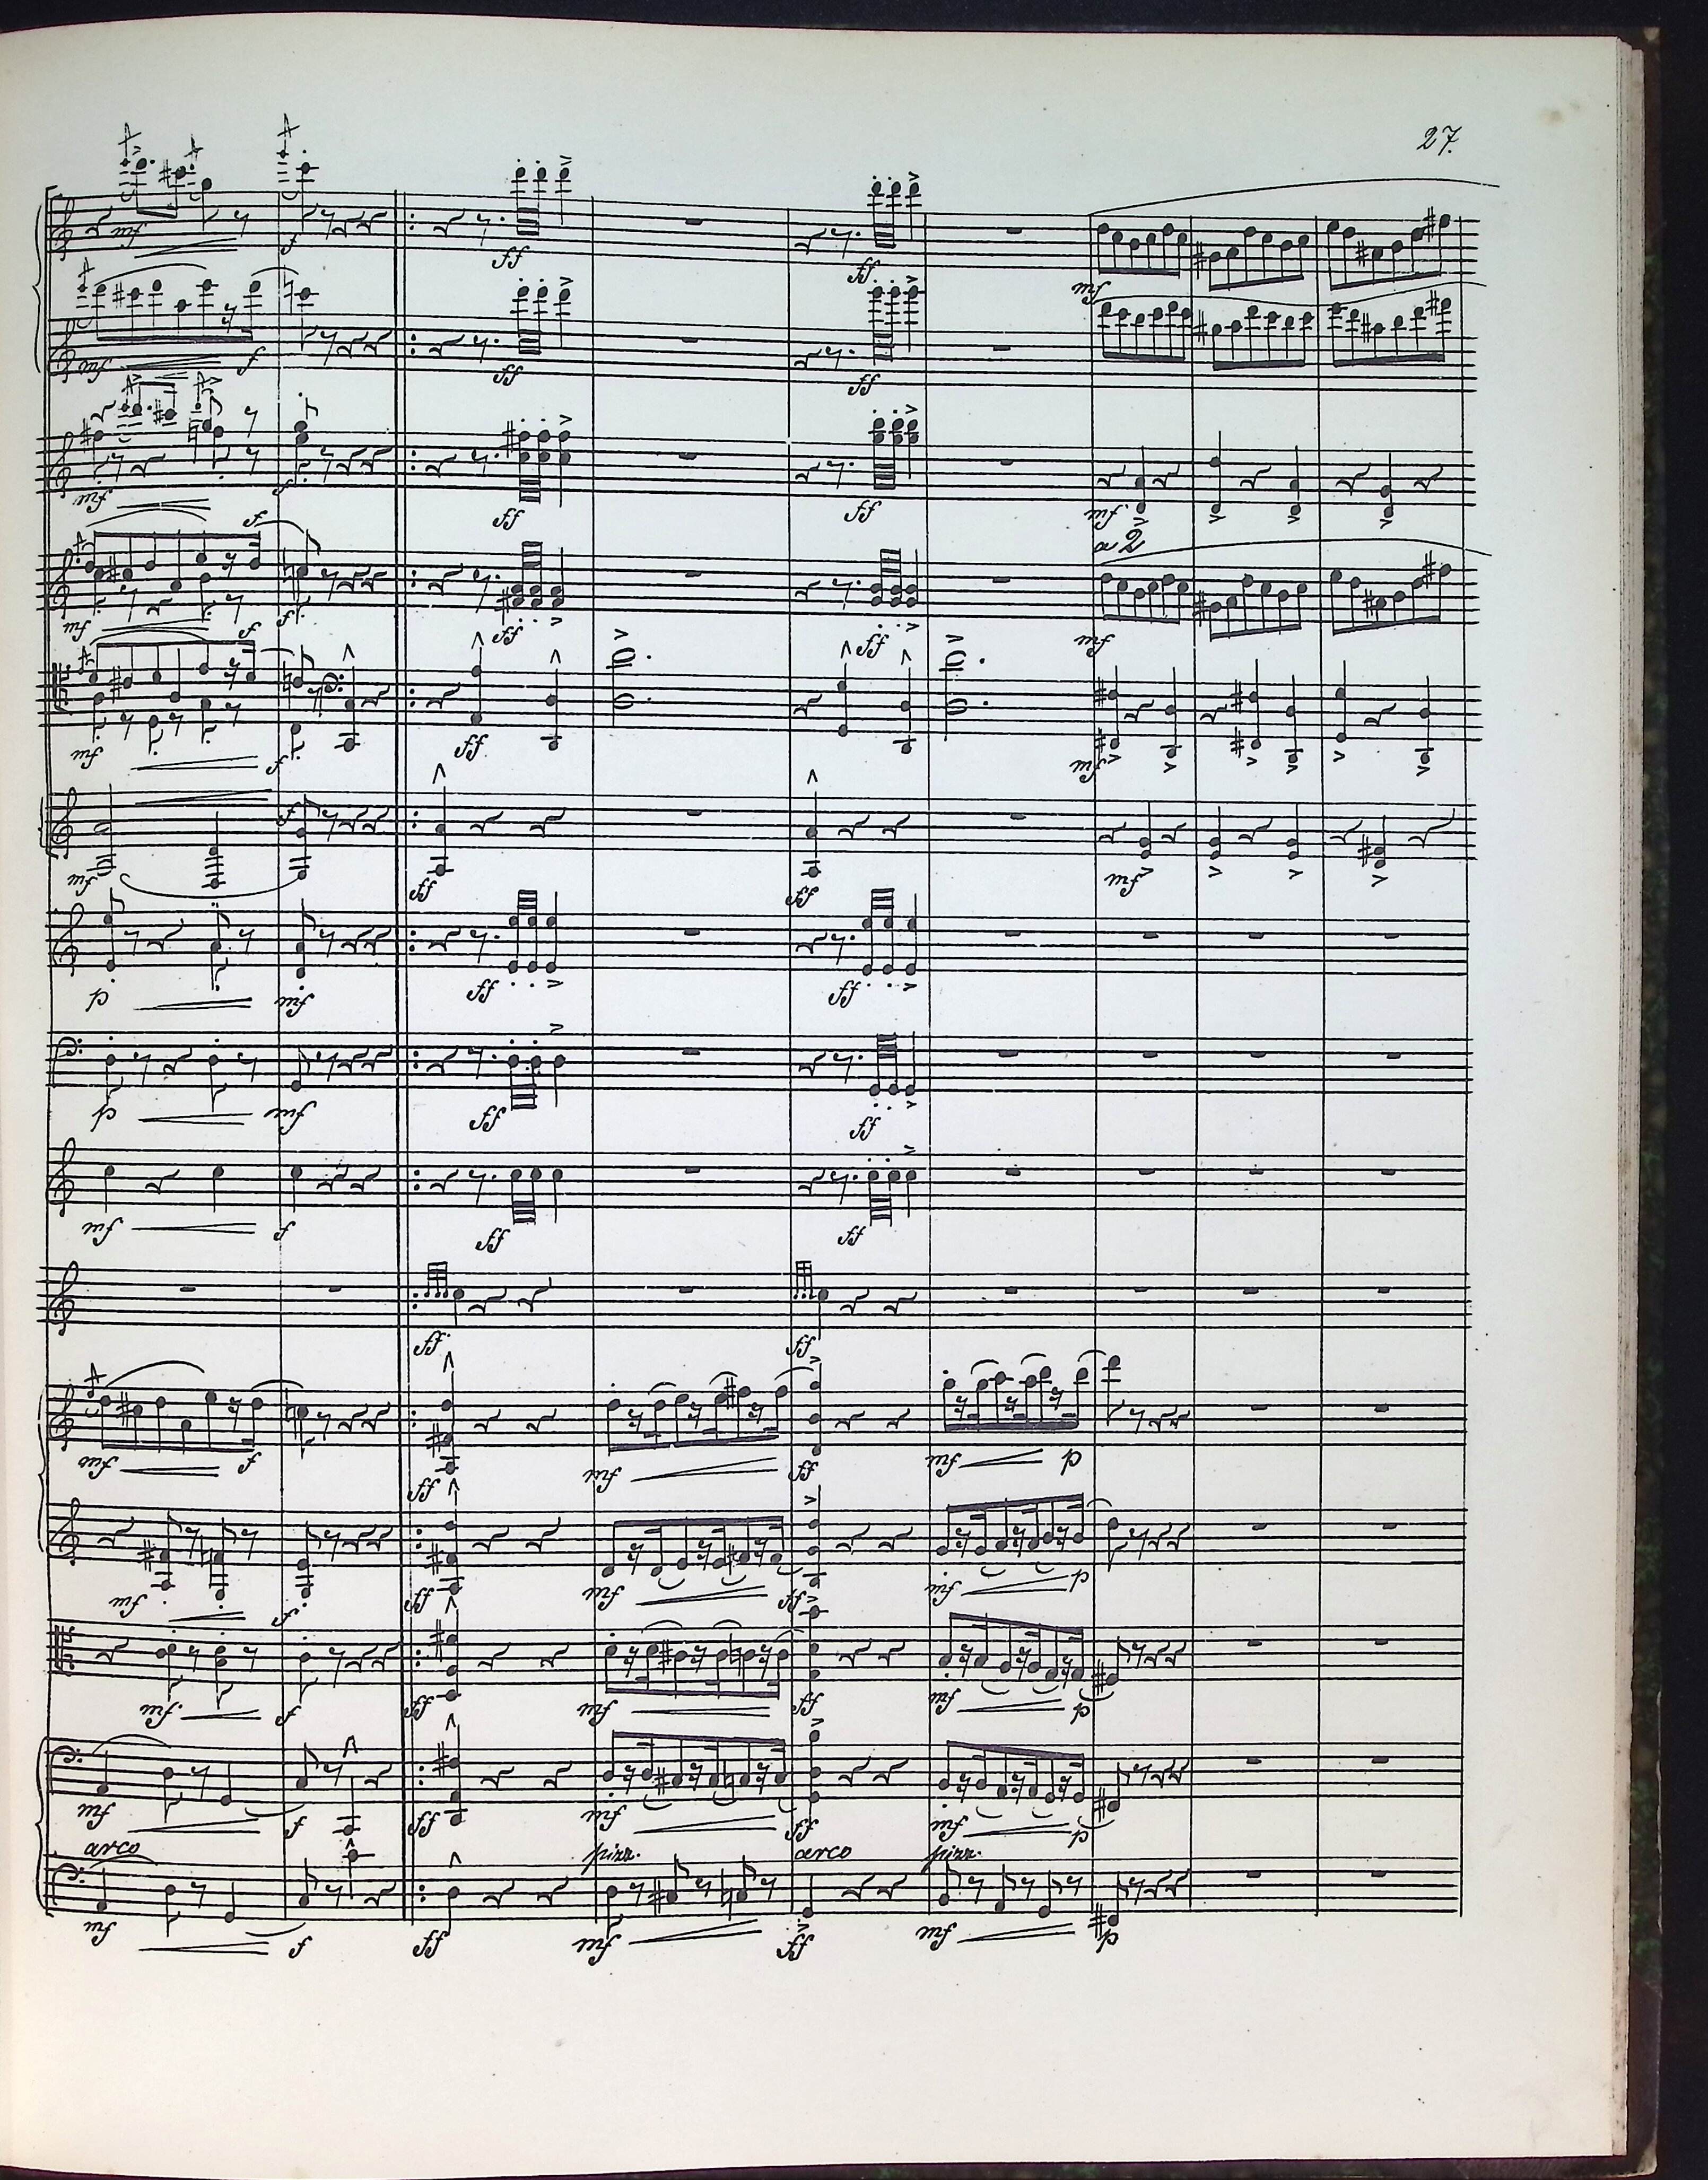 27.
mf f ff ff
mf
mf f ff ff
mf f ff ff mf
a 2
mf f f ff ff mf
mf f ff mf
mf f ff ff mf
p mf ff ff
p mf ff ff
mf f ff ff
ff ff
mf f ff mf ff mf p
mf f ff mf ff mf p
mf f ff mf ff mf p
mf f ff mf ff mf p
arco pizz. arco pizz.
mf f ff mf ff mf p